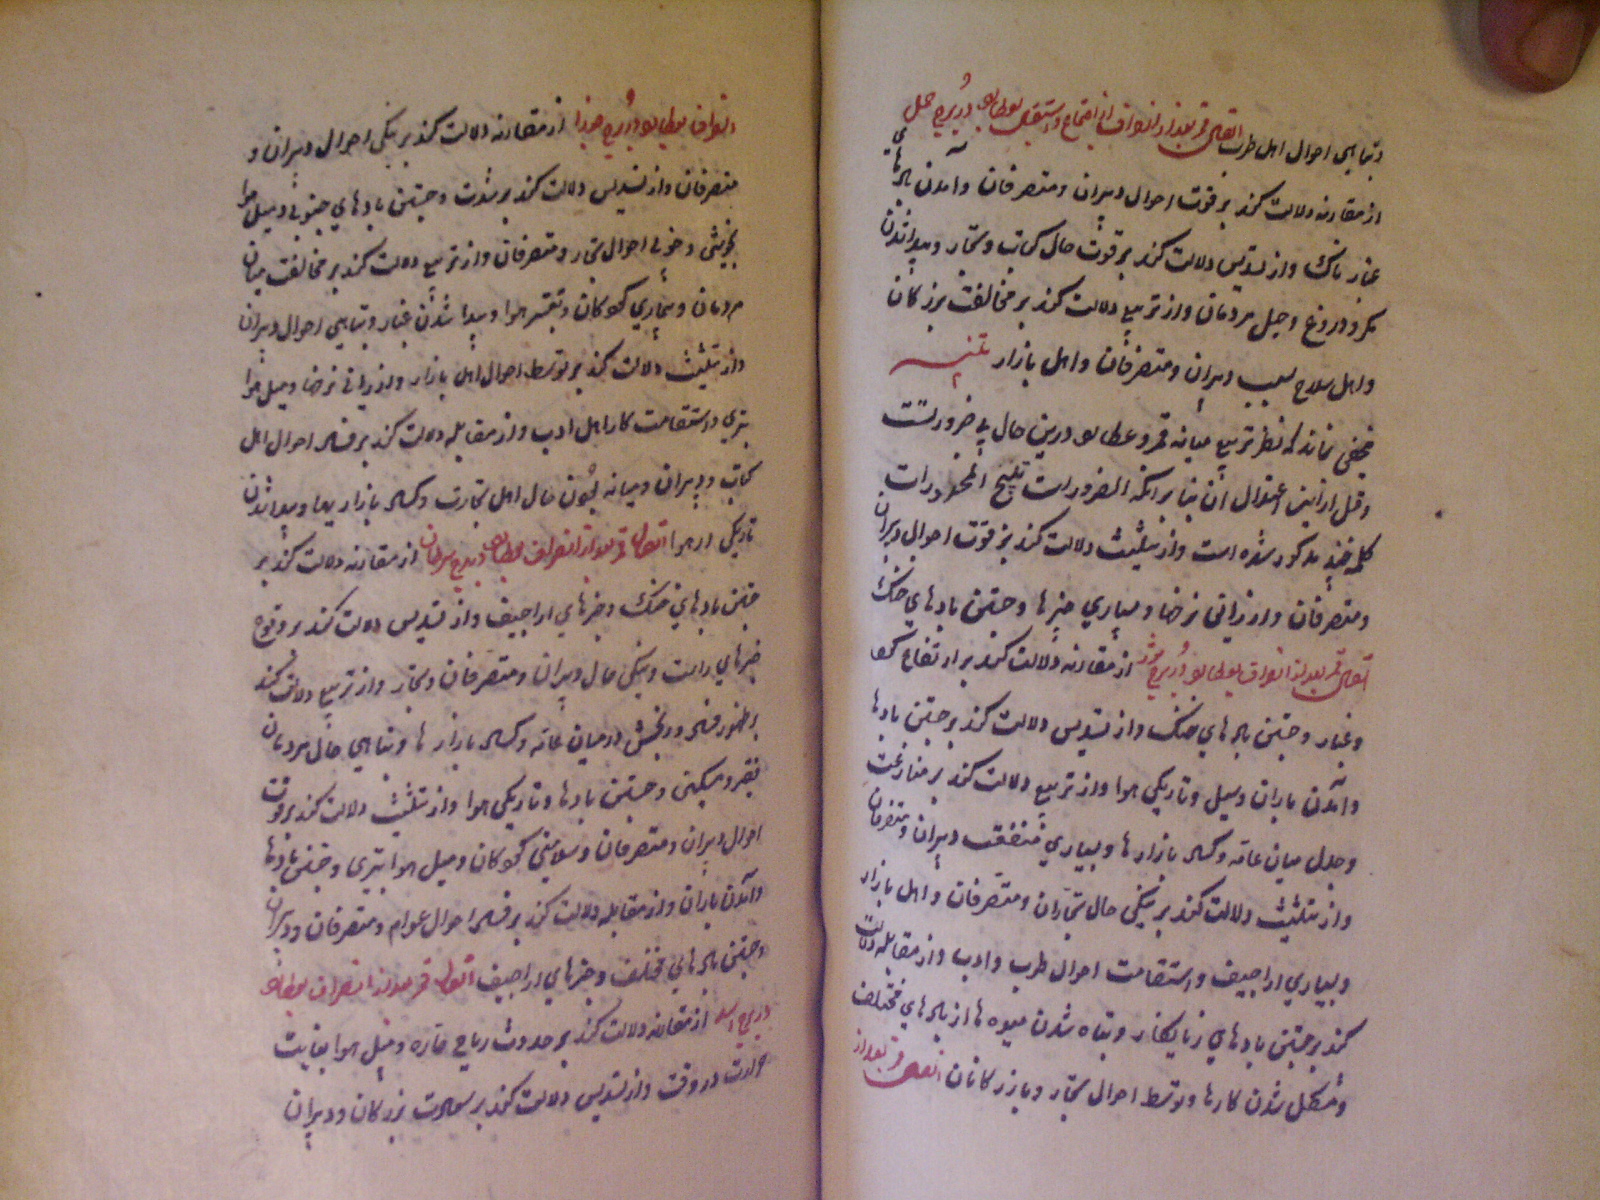 و تباهی احوال اهل طرب اتصال قمر بعد از انصراف از اجتماع و استقبال بعطارد در برج حمل
از مقارنه دلالت کند بر قوت احوال دبیران و متصرفان و آمدن بادهای
غبار ناک و از تسدیس دلالت کند بر قوت حال کتاب و تجار و پیدا شدن
مکر و دروغ و حیل مردمان و از تربیع دلالت کند بر مخالفت بزرگان
و اهل سلاح بسبب دبیران و متصرفان و اهل بازار تنبیه
مخفی نماند که نظر تربیع میانه قمر و عطارد درین حال بی ضرورتست
و قبل ازین اعتدال آن بنا بر آنکه الضرورات تبیح المحذورات
کلمه چند مذکور شده است و از تثلیث دلالت کند بر قوت احوال دبیران
و متصرفان و ارزانی نرخها و بسیاری خبرها و جستن بادهای خنک
اتصال قمر بعد از انصراف بعطارد در برج ثور از مقارنه دلالت کند بر ارتفاع
و غبار و جستن بادهای خنک و از تسدیس دلالت کند بر جستن بادها
و آمدن باران و سیل و تاریکی هوا و از تربیع دلالت کند بر منازعت
و جدل میان عامه و کساد بازارها و بسیاری منفعت دبیران و متصرفان
و از تثلیث دلالت کند بر نیکی حال تجاران و متصرفان و اهل بازار
و بسیاری اراجیف و استقامت احوال طرب و ادب و از مقابله دلالت
کند بر جستن بادهای زیانکار و تباه شدن میوه ها از بادهای مختلف
و مشکل شدن کارها و توسط احوال تجار و بازرگانان اتصال قمر بعد از
انصراف بعطارد در برج جوزا از مقارنه دلالت کند بر نیکی احوال دبیران و
متصرفان و از تسدیس دلالت کند بر شدت و جستن بادهای جنوبی و میل هوا
بخوشی و خوبی احوال تجار و متصرفان و از تربیع دلالت کند بر مخالفت میان
مردمان و بیماری کودکان و تغیر هوا و پیدا شدن غبار و تباهی احوال دبیران
و از تثلیث دلالت کند بر توسط احوال اهل بازار و ارزانی نرخها و میل هوا
بتری و استقامت کار اهل ادب و از مقابله دلالت کند بر فساد احوال اهل
کتاب و دبیران و میانه بودن حال اهل تجارت و کساد بازار بها و پیدا شدن
تاریکی در هوا اتصال قمر بعد از انصراف بعطارد در برج سرطان از مقارنه دلالت کند بر
جستن بادهای خنک و خبرهای اراجیف و از تسدیس دلالت کند بر وقوع
خبرهای راست و نیکی حال دبیران و متصرفان و تجار و از تربیع دلالت کند
بر ظهور فساد و رنجش در میان عامه و کساد بازارها و تباهی حال مردمان
فقیر و مسکین و جستن بادها و تاریکی هوا و از تثلیث دلالت کند بر قوت
احوال دبیران و متصرفان و سلامتی کودکان و میل هوا بتری و جستن بادها
و آمدن باران و از مقابله دلالت کند بر فساد احوال عوام و متصرفان و دبیران
و جستن بادهای مختلف و خبرهای اراجیف اتصال قمر بعد از انصراف بعطارد
در برج اسد از مقارنه دلالت کند بر حدوث ریاح حاره و میل هوا بغایت
حرارت در وقت و از تسدیس دلالت کند بر سعادت بزرگان و دبیران